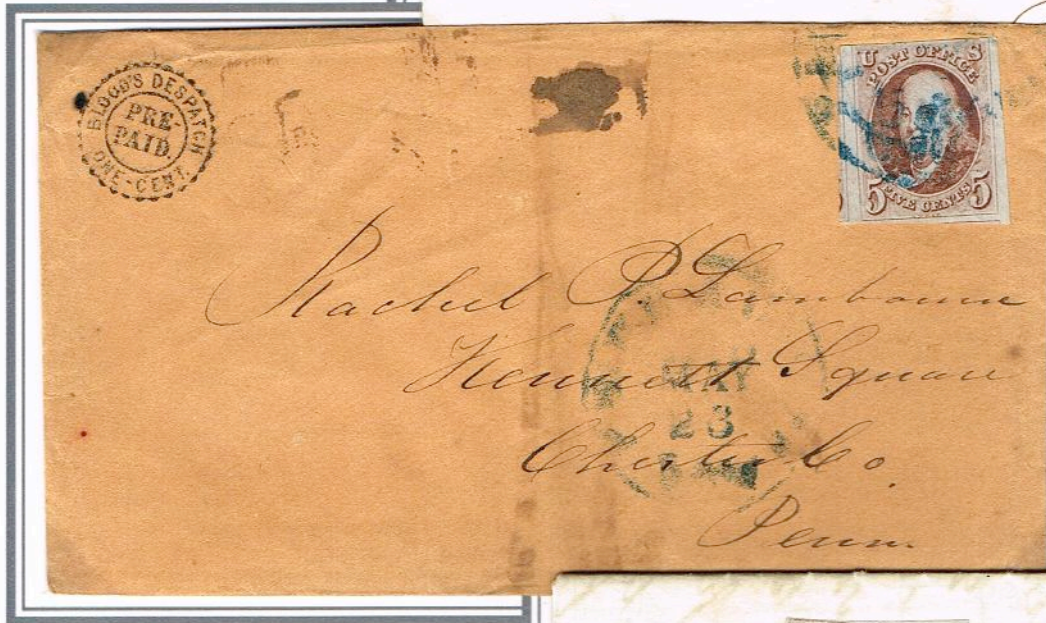 BLOOD'S DESPATCH
PRE-
PAID.
ONE-CENT.
U S
POST OFFICE
5 FIVE CENTS 5
Rachel P. Lambourne
Kennett Square
MAY
23
Chester Co.
Penn.